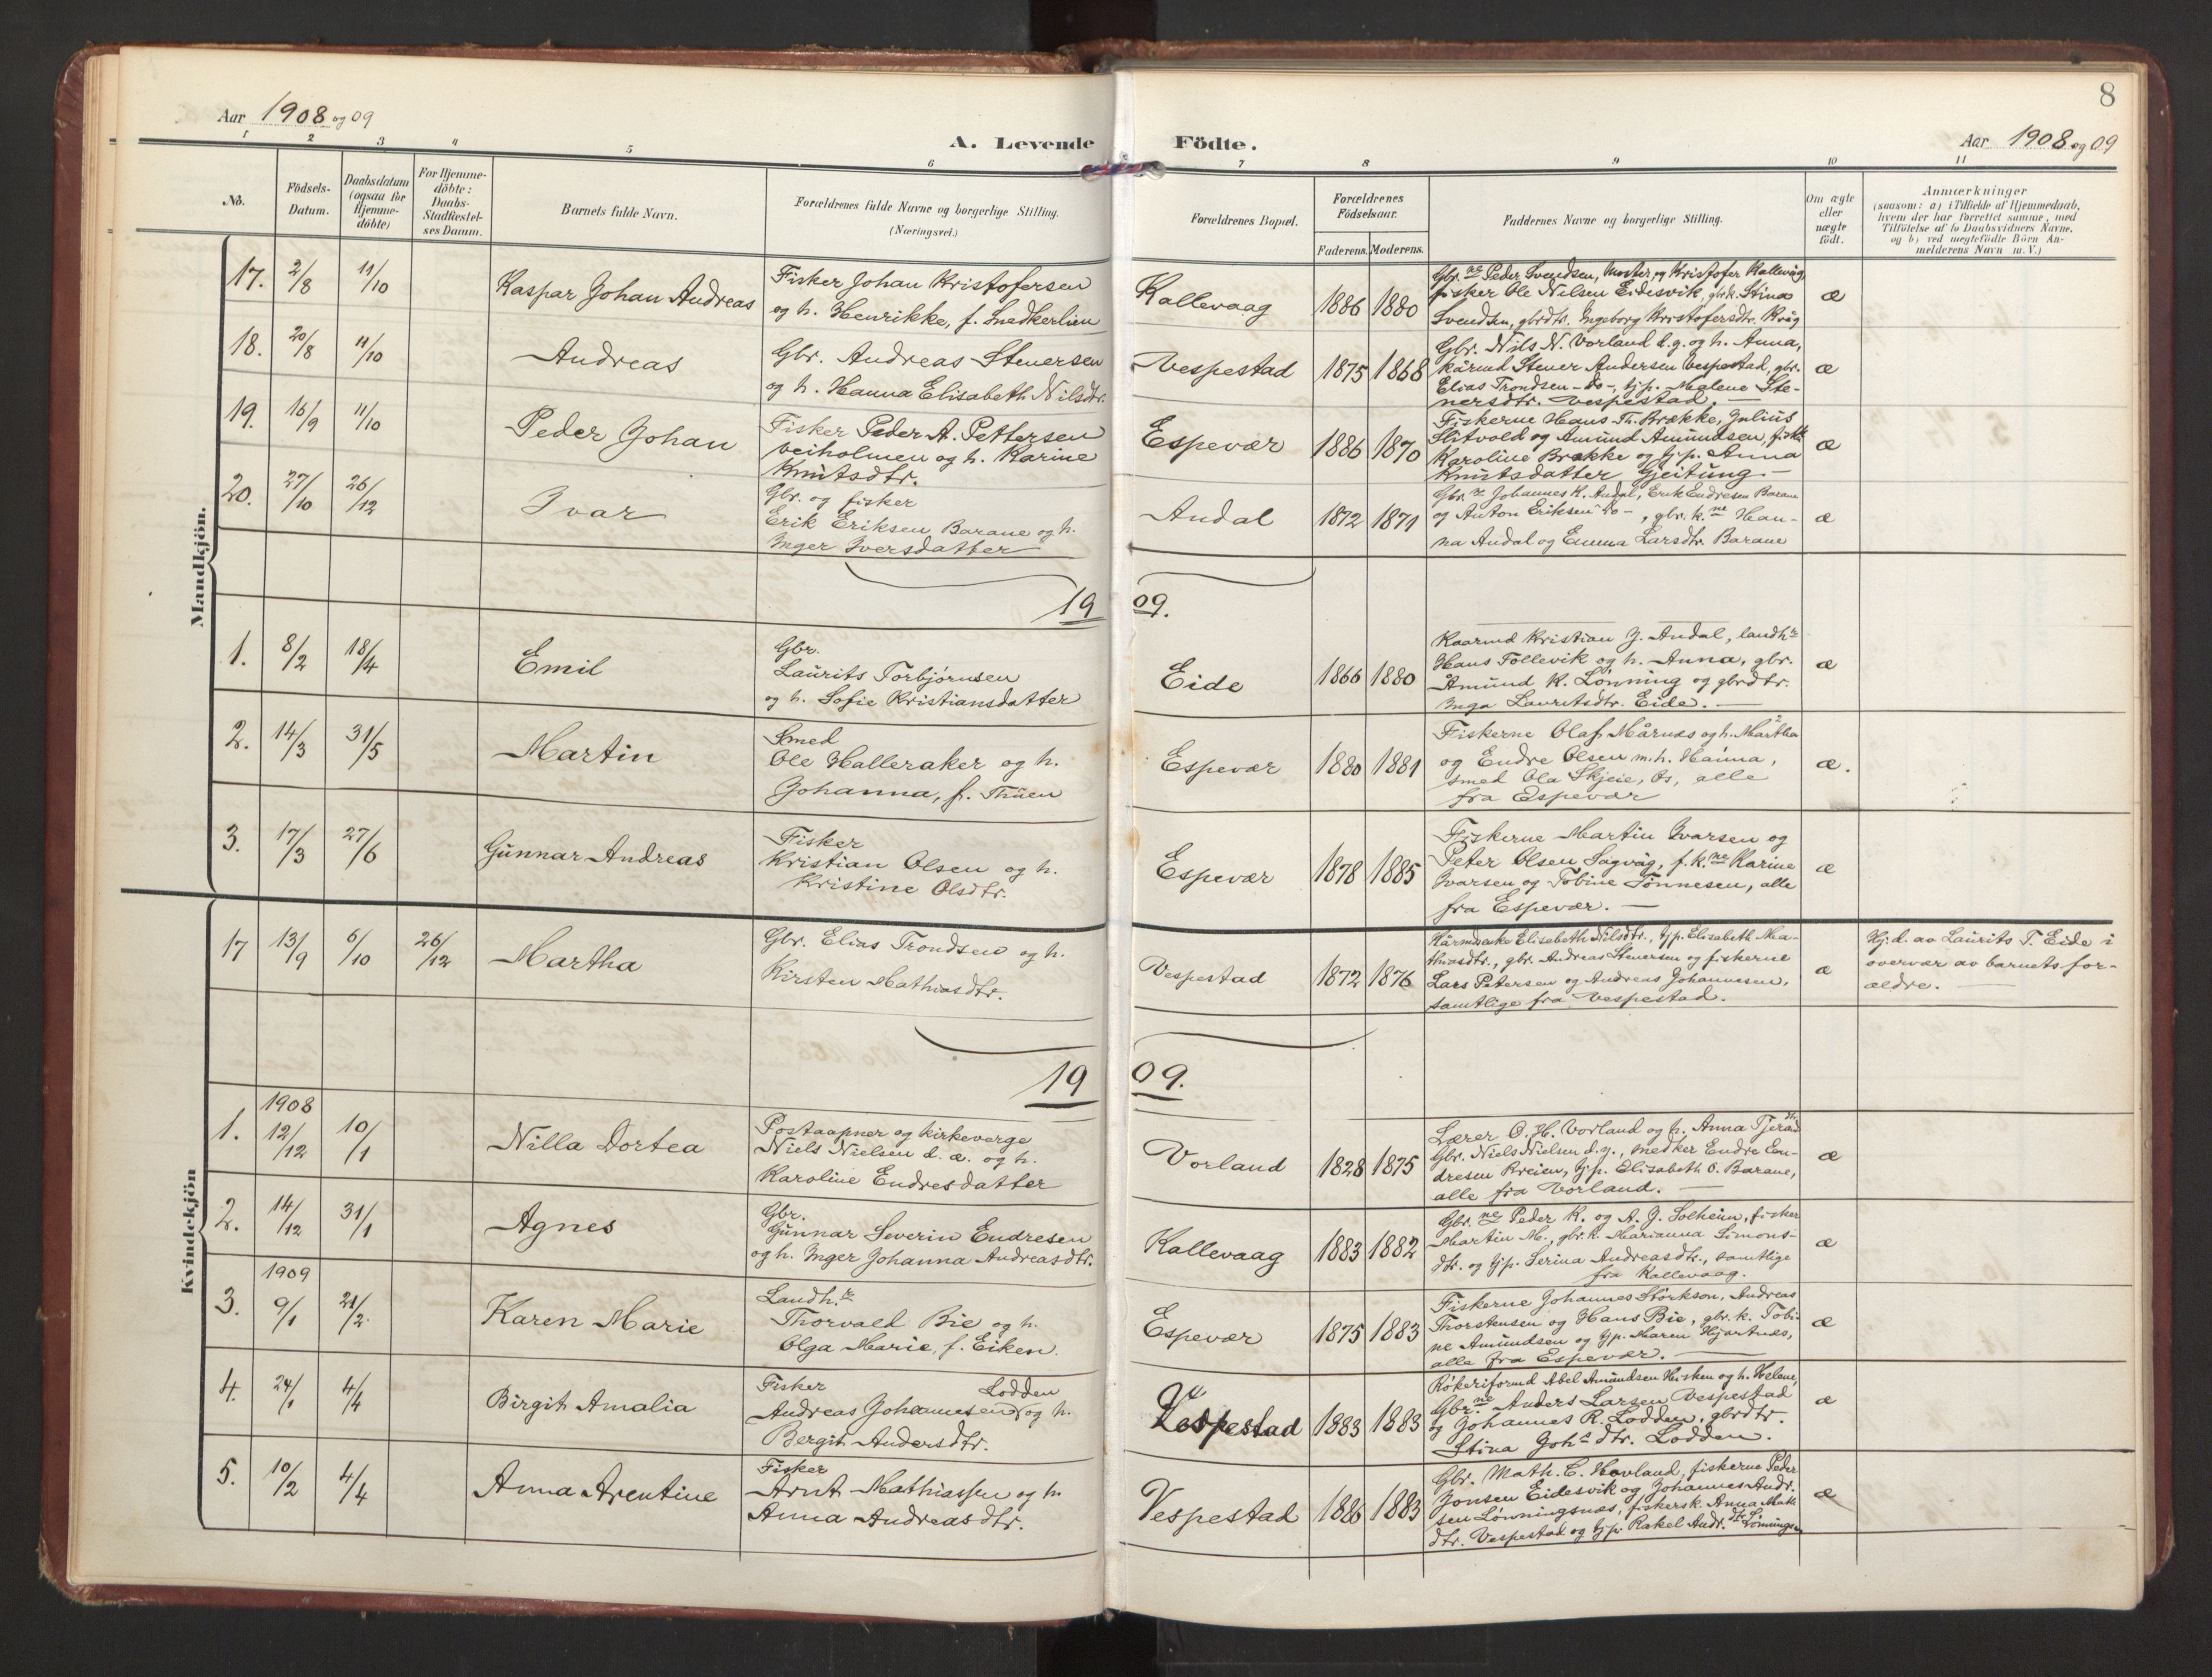 8
Aar 1908 og 09
A. Levende
Födte.
Aar 1908 og 09
1 2 3 4 5 6 7 8 9 10 11
No.
Födsels-
Datum.
Daabsdatum
(ogsaa for
Hjemme-
döbte)
For Hjemme-
döbte:
Daabs-
Stadfæstel-
ses Datum.
Barnets fulde Navn.
Forældrenes fulde Navne og borgerlige Stilling.
(Næringsvei.)
Forældrenes Bopæl.
Forældrenes
Födselsaar.
Faderens. Moderens.
Faddernes Navne og borgerlige Stilling.
Om ægte
eller
uægte
födt.
Anmærkninger
(saasom: a) i Tilfælde af Hjemmedaab,
hvem der har forrettet samme, med
Tilföielse af to Daabsvidners Navne,
og b) ved uægtefödte Börn An-
melderens Navn m.V.)
Mandkjön.
17. 2/8 11/10
Kaspar Johan Andreas
Fisker Johan Kristofersen
og h. Henrikke, f. Snedkerlien
Kallevaag
1886 1880
Gbr.ne Peder Svendsen, Moster, og Kristofer Kallevåg,
fisker Ole Nilsen Eidesvik, gbrk. Stina
Svendsen, gbrdtr. Ingeborg Kristofersdtr. Kvåg
æ
18. 20/8 11/10
Andreas
Gbr. Andreas Stenersen
og h. Hanna Elisabeth Nilsdtr.
Vespestad
1875 1868
Gbr. Nils N. Vorland d.y. og h. Anna,
kårmd Stener Andersen Vespestad, gbr.
Elias Trondsen - do -, tjp. Malene Ste-
nersdtr. Vespestad. —
æ
19. 16/9 11/10
Peder Johan
Fisker Peder A. Pettersen
Veiholmen og h. Karine
Knutsdtr.
Espevær
1886 1870
Fiskerne Hans Th. Brække, Julius
Slitvold og Amund Amundsen, fiskk.
Karoline Brække og tjp. Anna
Knutsdatter Gjeitung. —
æ
20. 27/10 26/12
Ivar
Gbr. og fisker
Erik Eriksen Barane og h.
Inger Iversdatter
Andal
1872 1871
Gbr.e Johannes K. Andal, Erik Endresen Barane
og Anton Eriksen do -, gbr. k.ne Han-
na Andal og Emma Larsdtr. Barane
æ
19 09.
1. 8/2 18/4
Emil
Gbr.
Laurits Torbjørnsen
og h. Sofie Kristiansdatter
Eide
1866 1880
Kaarmd Kristian J. Andal, landhr
Hans Tollevik og h. Anna, gbr.
Åmund K. Lønning og gbrdtr.
Inga Lauritsdtr. Eide. —
æ
2. 14/3 31/5
Martin
Smed
Ole Halleraker og h.
Johanna, f. Thuen
Espevær
1880 1881
Fiskerne Olaf Mårnæs og h. Martha
og Endre Olsen m.h. Hanna,
smed Ola Skjeie, Os, alle
fra Espevær
æ.
3. 17/3 27/6
Gunnar Andreas
Fisker
Kristian Olsen og h.
Kristine Olsdtr.
Espevær
1878 1885
Fiskerne Martin Ivarsen og
Peter Olsen Sagvåg, f.k.ne Karine
Ivarsen og Tobine Tønnesen, alle
fra Espevær. —
æ
Kvindekjön
17 13/9 6/10 26/12
Martha
Gbr. Elias Trondsen og h.
Kirsten Mathiasdtr.
Vespestad
1872 1876
Elisabeth Nilsdtr., tjp. Elisabeth Ma-
thiasdtr., gbr. Andreas Stenersen og fiskerne
Lars Petersen og Andreas Johannesen,
samtlige fra Vespestad.
æ
Hj.d. av Laurits T. Eide i
overvær av barnets for-
ældre. —
19 09.
1. 1908 12/12 10/1
Nilla Dortea
Postaapner og kirkeverge
Niels Nielsen d. æ. og h.
Karoline Endresdatter
Vorland
1828 1875
Lærer O. H. Vorland og h. Anna
Gbr. Niels Nielsen d.y., snedker Endre En-
dresen Kreien, tjp. Elisabeth O. Barane,
alle fra Vorland. —
æ
2. 14/12 31/1
Agnes
Gbr.
Gunnar Severin Endresen
og h. Inger Johanna Andreasdtr.
Kallevaag
1883 1882
Gbr.ne Peder K. og A. J. Solheim, fisker
Martin M., gbr. k. Marianna Simons-
dtr. og tjp. Serina Andreasdtr., samtlige
fra Kallevaag.
æ
3. 1909 9/1 21/2
Karen Marie
Landh.r
Thorvald Bie og h.
Olga Marie, f. Eiken.
Espevær
1875 1883
Fiskerne Johannes Størkson, Andreas
Thorstensen og Hans Bie, gbr. k. Tobi-
ne Amundsen og tjp. Maren Hjartnæs,
alle fra Espevær. —
æ
4. 24/1 4/4
Birgit Amalia
Fisker Lodden
Andreas Johannesen og h.
Bergit Andersdtr.
Vespestad
1883 1883
Røkeriformd Abel Amundsen Hisken og h. Helene,
Gbr.ne Anders Larsen Vespestad
og Johannes R. Lodden, gbrdtr.
Stina Joh.s dtr. Lodden.
æ
5. 10/2 4/4
Anna Arentine
Fisker
Arnt Mathiassen og h
Anna Andreasdtr.
Vespestad
1886 1883
Gbr. Math. C. Hovland, fiskerne Peder
Jonsen Eidesvik og Johannes Andr.
sen Lønningsnæs, fiskersk. Anna Math
dtr. Vespestad og tjp. Rakel Andr. dtr. Lønningen
æ